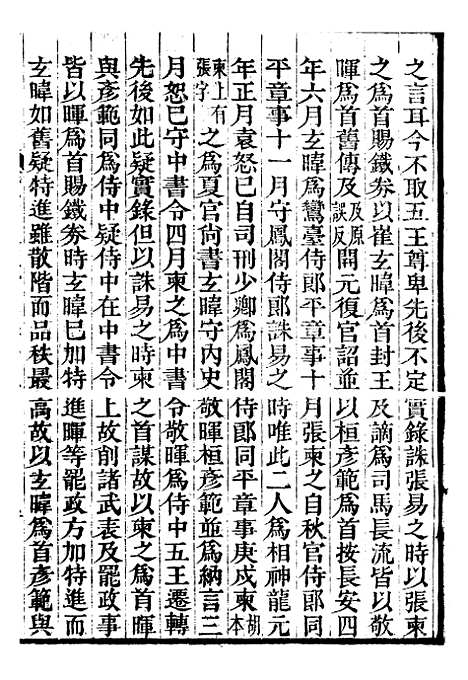 之言耳今不取五王尊卑先後不定實錄誅張易之時以張柬
之爲首賜鐵券以崔玄暐爲首封王及謫爲司馬長流皆以敬
暉爲首舊傳及及原誤反開元復官詔並以桓彥範爲首按長安四
年六月玄暐爲鸞臺侍郞平章事十月張柬之自秋官侍郞同
平章事十一月守鳳閣侍郞誅易之時唯此二人爲相神龍元
年正月袁恕已自司刑少卿爲鳳閣侍郞同平章事庚戌柬胡本
柬上有張字之爲夏官尙書玄暐守內史敬暉桓彥範並爲納言三
月恕已守中書令四月柬之爲中書令敬暉爲侍中五王遷轉
先後如此疑實錄但以誅易之時柬之首謀故以柬之爲首暉
與彥範同爲侍中疑侍中在中書令上故創諸武表及罷政事
皆以暉爲首賜鐵券時玄暐已加特進暉等罷政方加特進而
玄暐如舊疑特進雖散階而品秩最高故以玄暐爲首彥範與